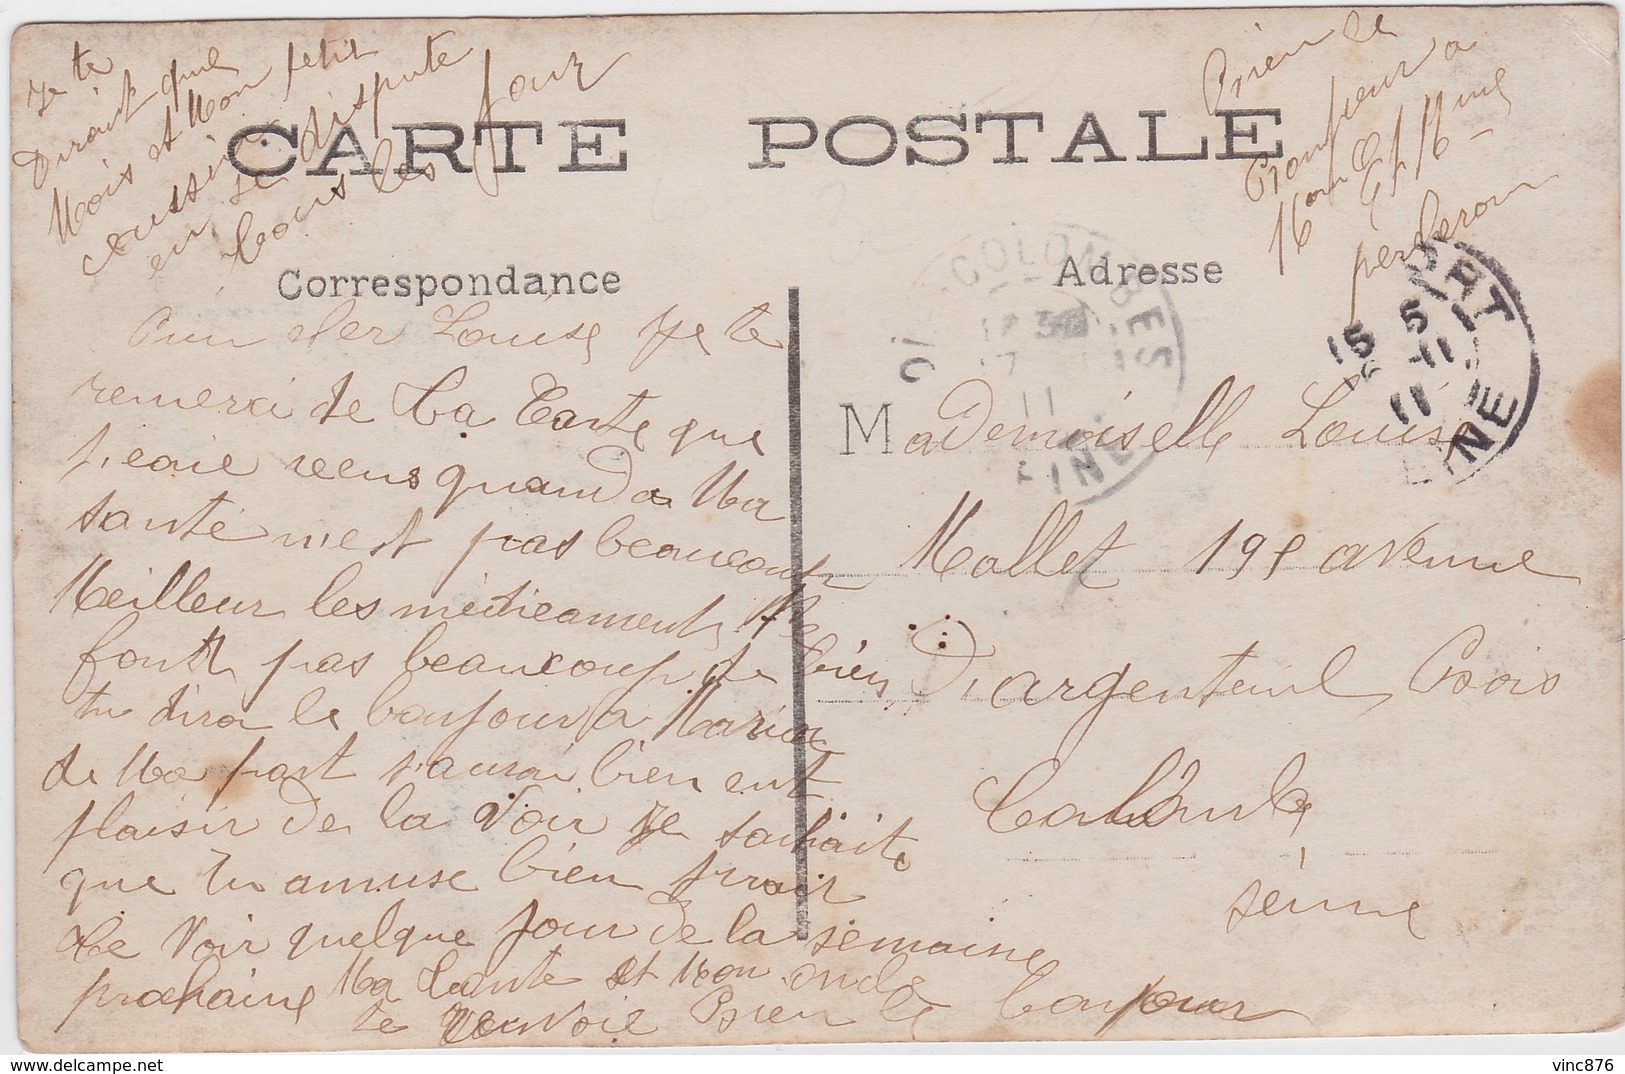 Je te
Dirait que
Mois et Mon petit
coussin
en se dispute
tous les jour
Bien le
Bonjour a
Mon Et Mme
CARTE POSTALE
Correspondance
Adresse
COLOMBES
Bien cher Louise Je te
remerci de La Carte que
j'eaie reçus quand a Ma
santé n'est pas beaucoup
Meilleur les médicaments Me
font pas beaucoup de bien
tu dira le bonjour a Marie
de Ma part j'aurai bien eut
plaisir De la Voir Je souhaite
que Tu amuse bien j'irait
Le Voir quelque jour De la semaine
prochaine Ma Tante et Mon oncle
te renvoie Bien le bonjour
Mademoiselle Louise
Mallet 191 avenue
D'argenteuil Bois
Colombe
seinne
vinc876